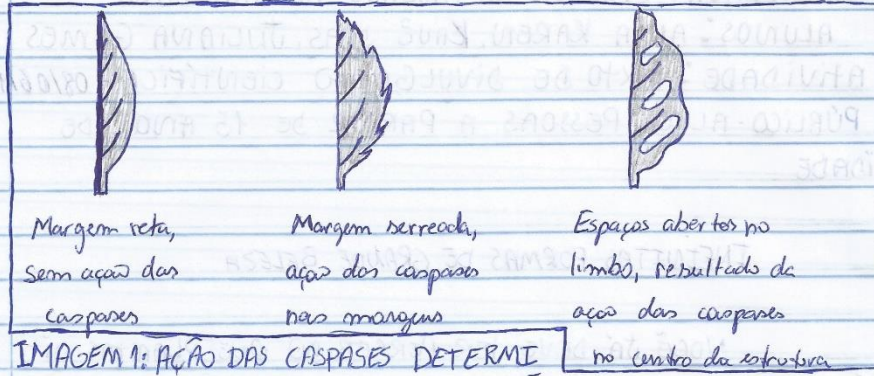 Margem reta,
sem ação das
caspases
Margem serreada,
ação das caspases
nas margens
Espaços abertos no
limbo, resultado da
ação das caspases
no centro da estrutura
IMAGEM 1: AÇÃO DAS CASPASES DETERMI